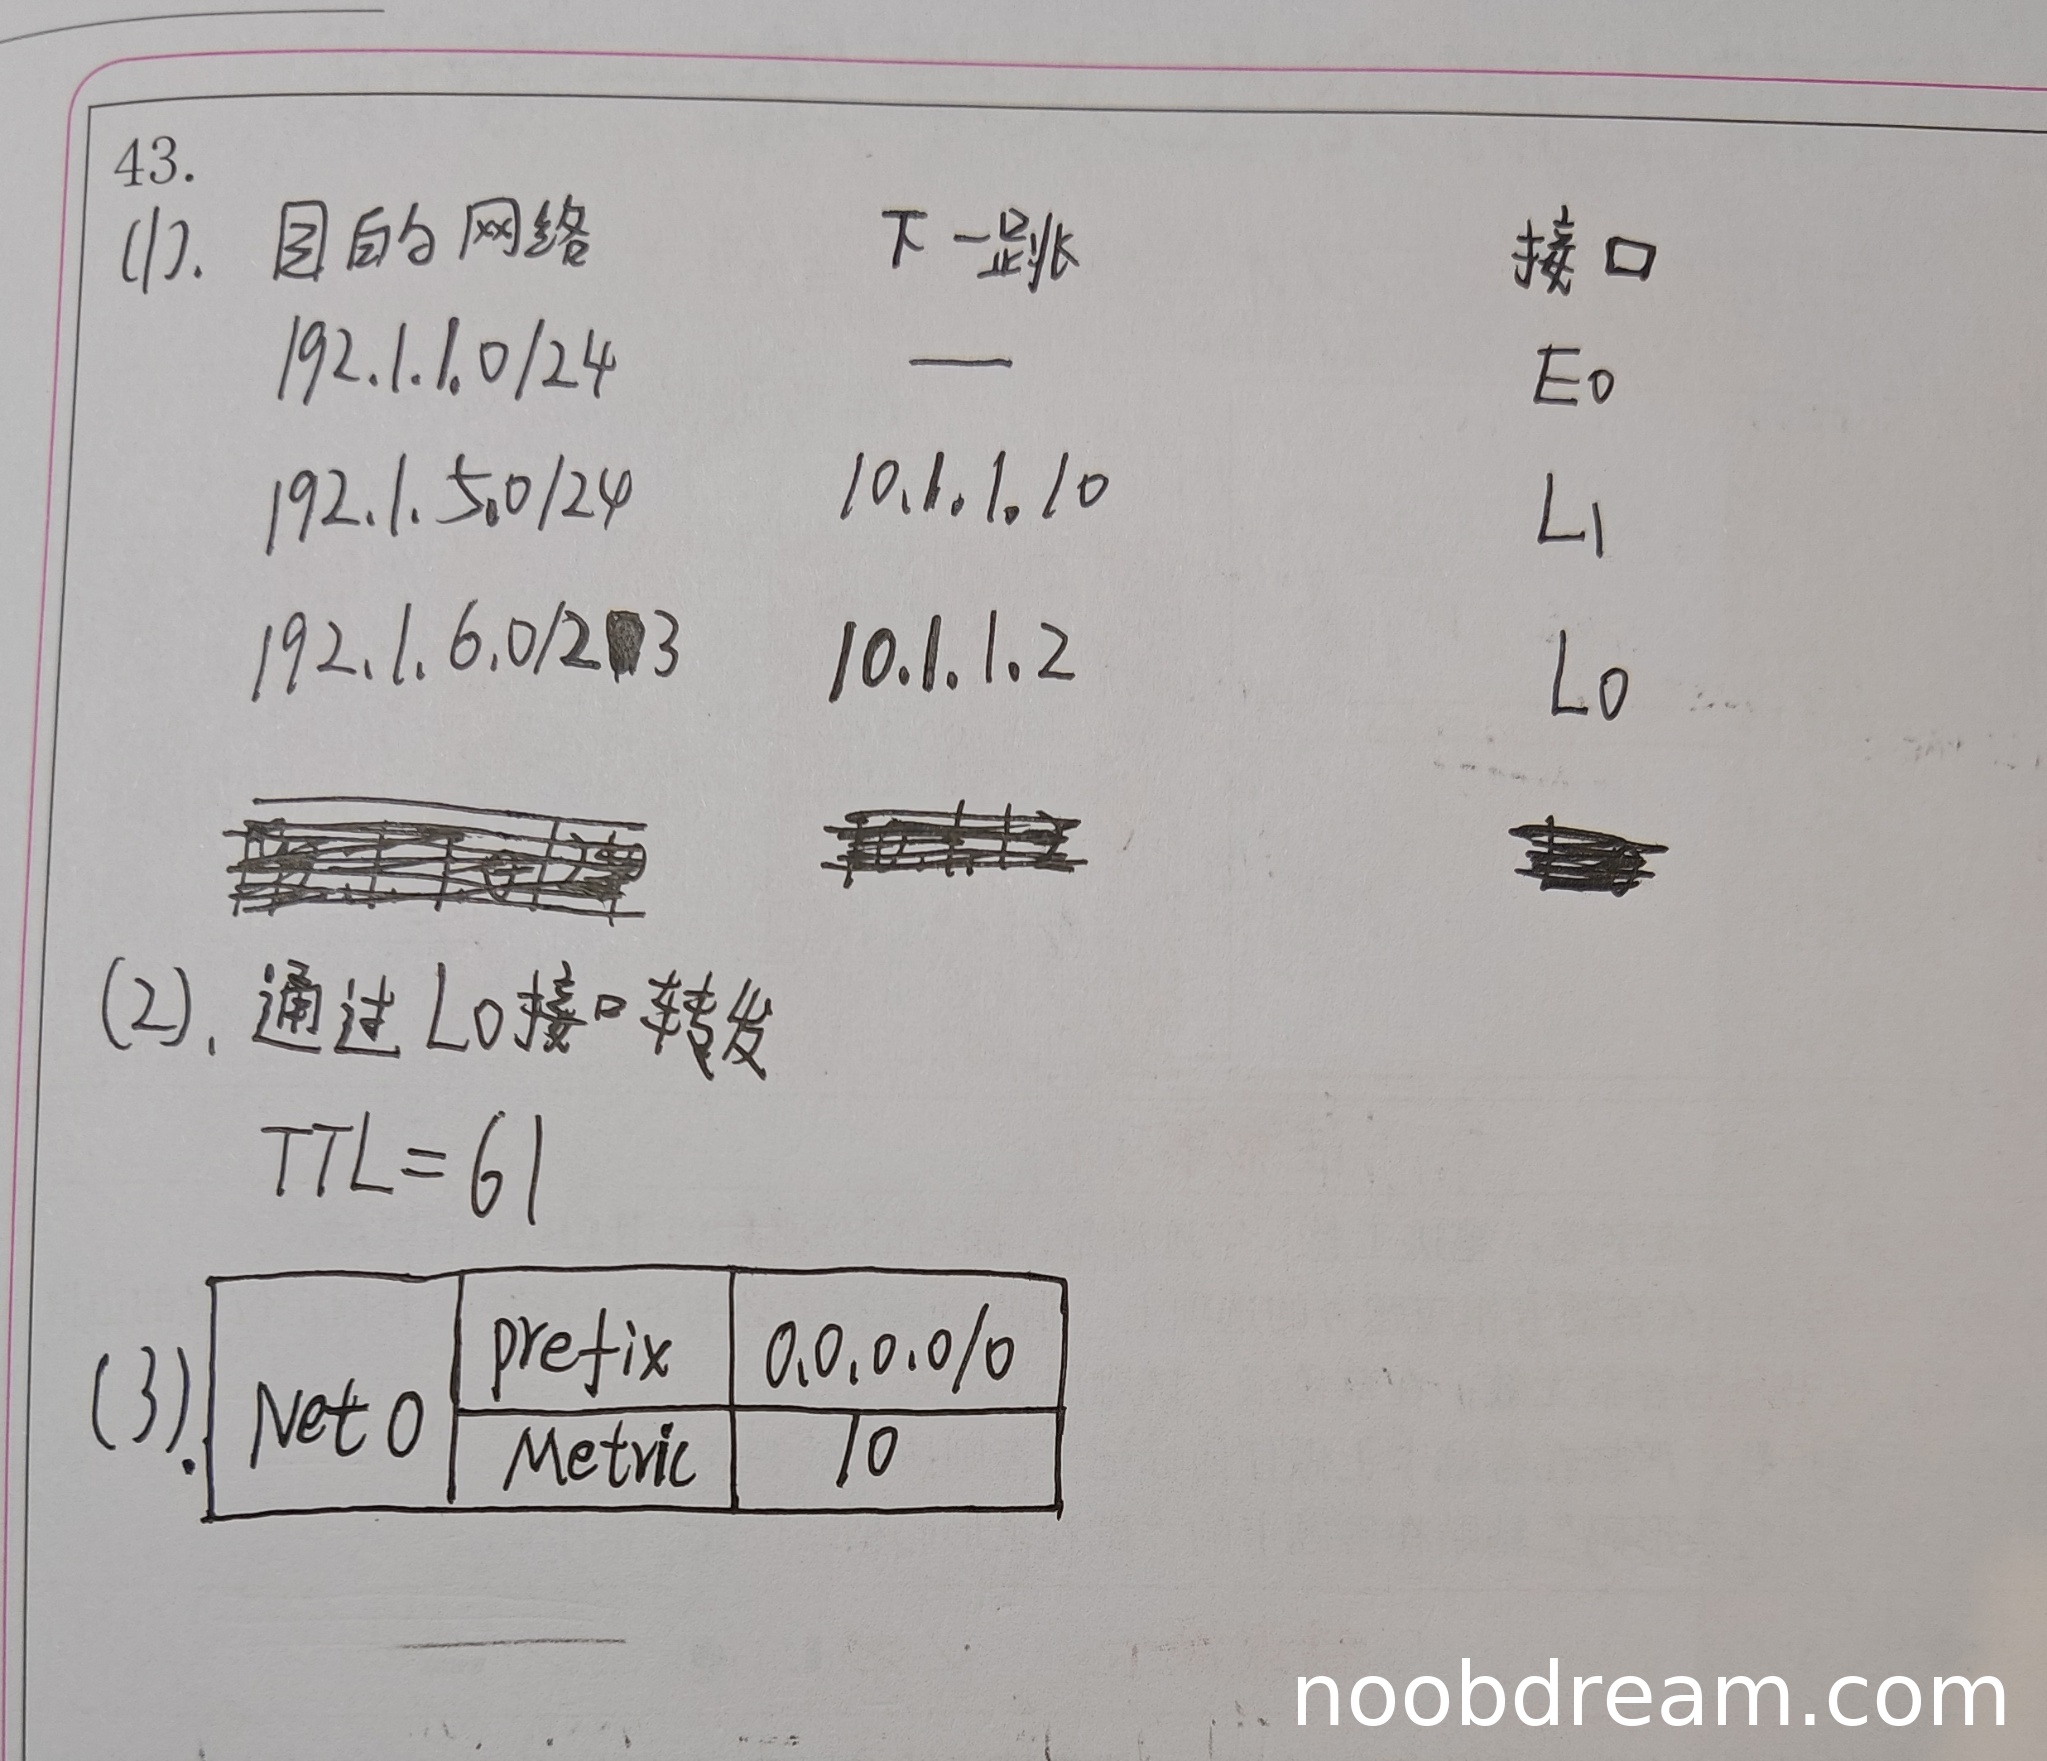 43.
(1). 目的网络 下一跳 接口
192.1.1.0/24 — E0
192.1.5.0/24 10.1.1.10 L1
192.1.6.0/23 10.1.1.2 L0
(2). 通过L0接口转发
TTL=61
(3). Net0 prefix 0.0.0.0/0
Metric 10
noobdream.com